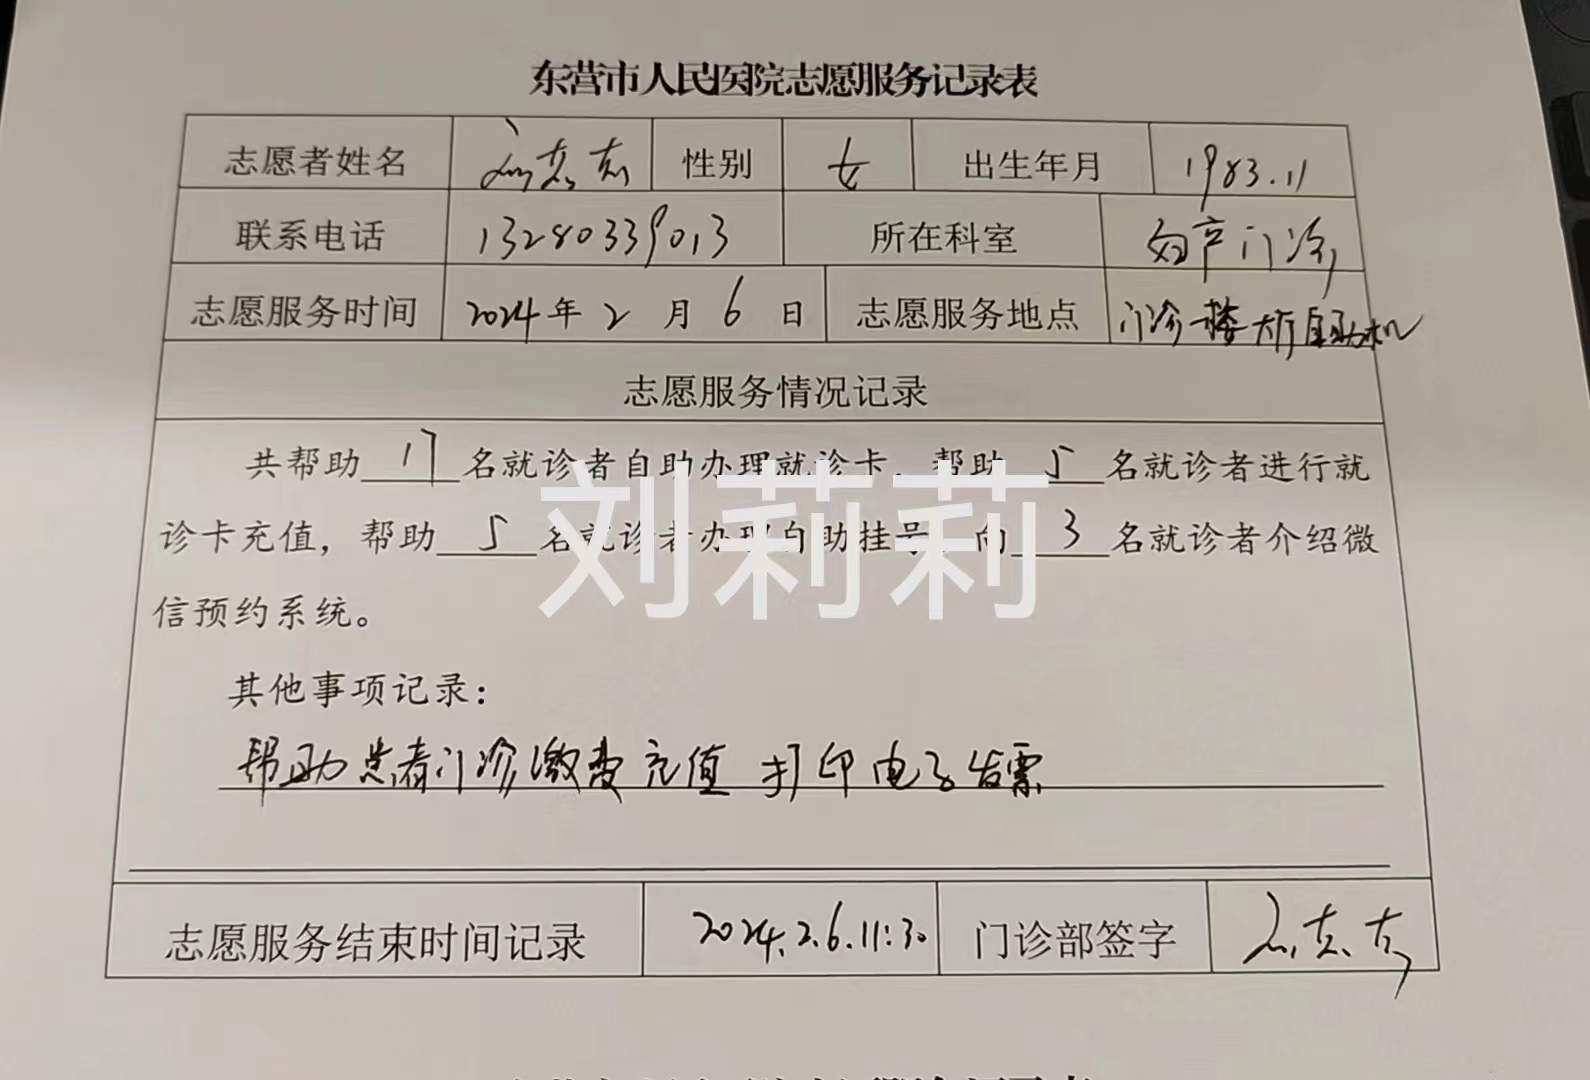 东营市人民医院志愿服务记录表
志愿者姓名 刘莉莉 性别 女 出生年月 1983.11
联系电话 13280339013 所在科室 妇产门诊
志愿服务时间 2024年2月6日 志愿服务地点 门诊楼大厅自助机
志愿服务情况记录
共帮助17名就诊者自助办理就诊卡，帮助5名就诊者进行就
诊卡充值，帮助5名就诊者办理自助挂号，向3名就诊者介绍微
信预约系统。
刘莉莉
其他事项记录：
帮助患者门诊缴费充值 打印电子发票
志愿服务结束时间记录 2024.2.6.11:30 门诊部签字